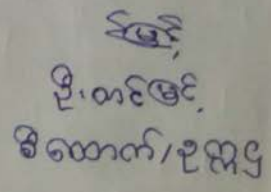 မြင့်
ဦးတင်မြင့်
စီထောက်/ဥက္ကဌ